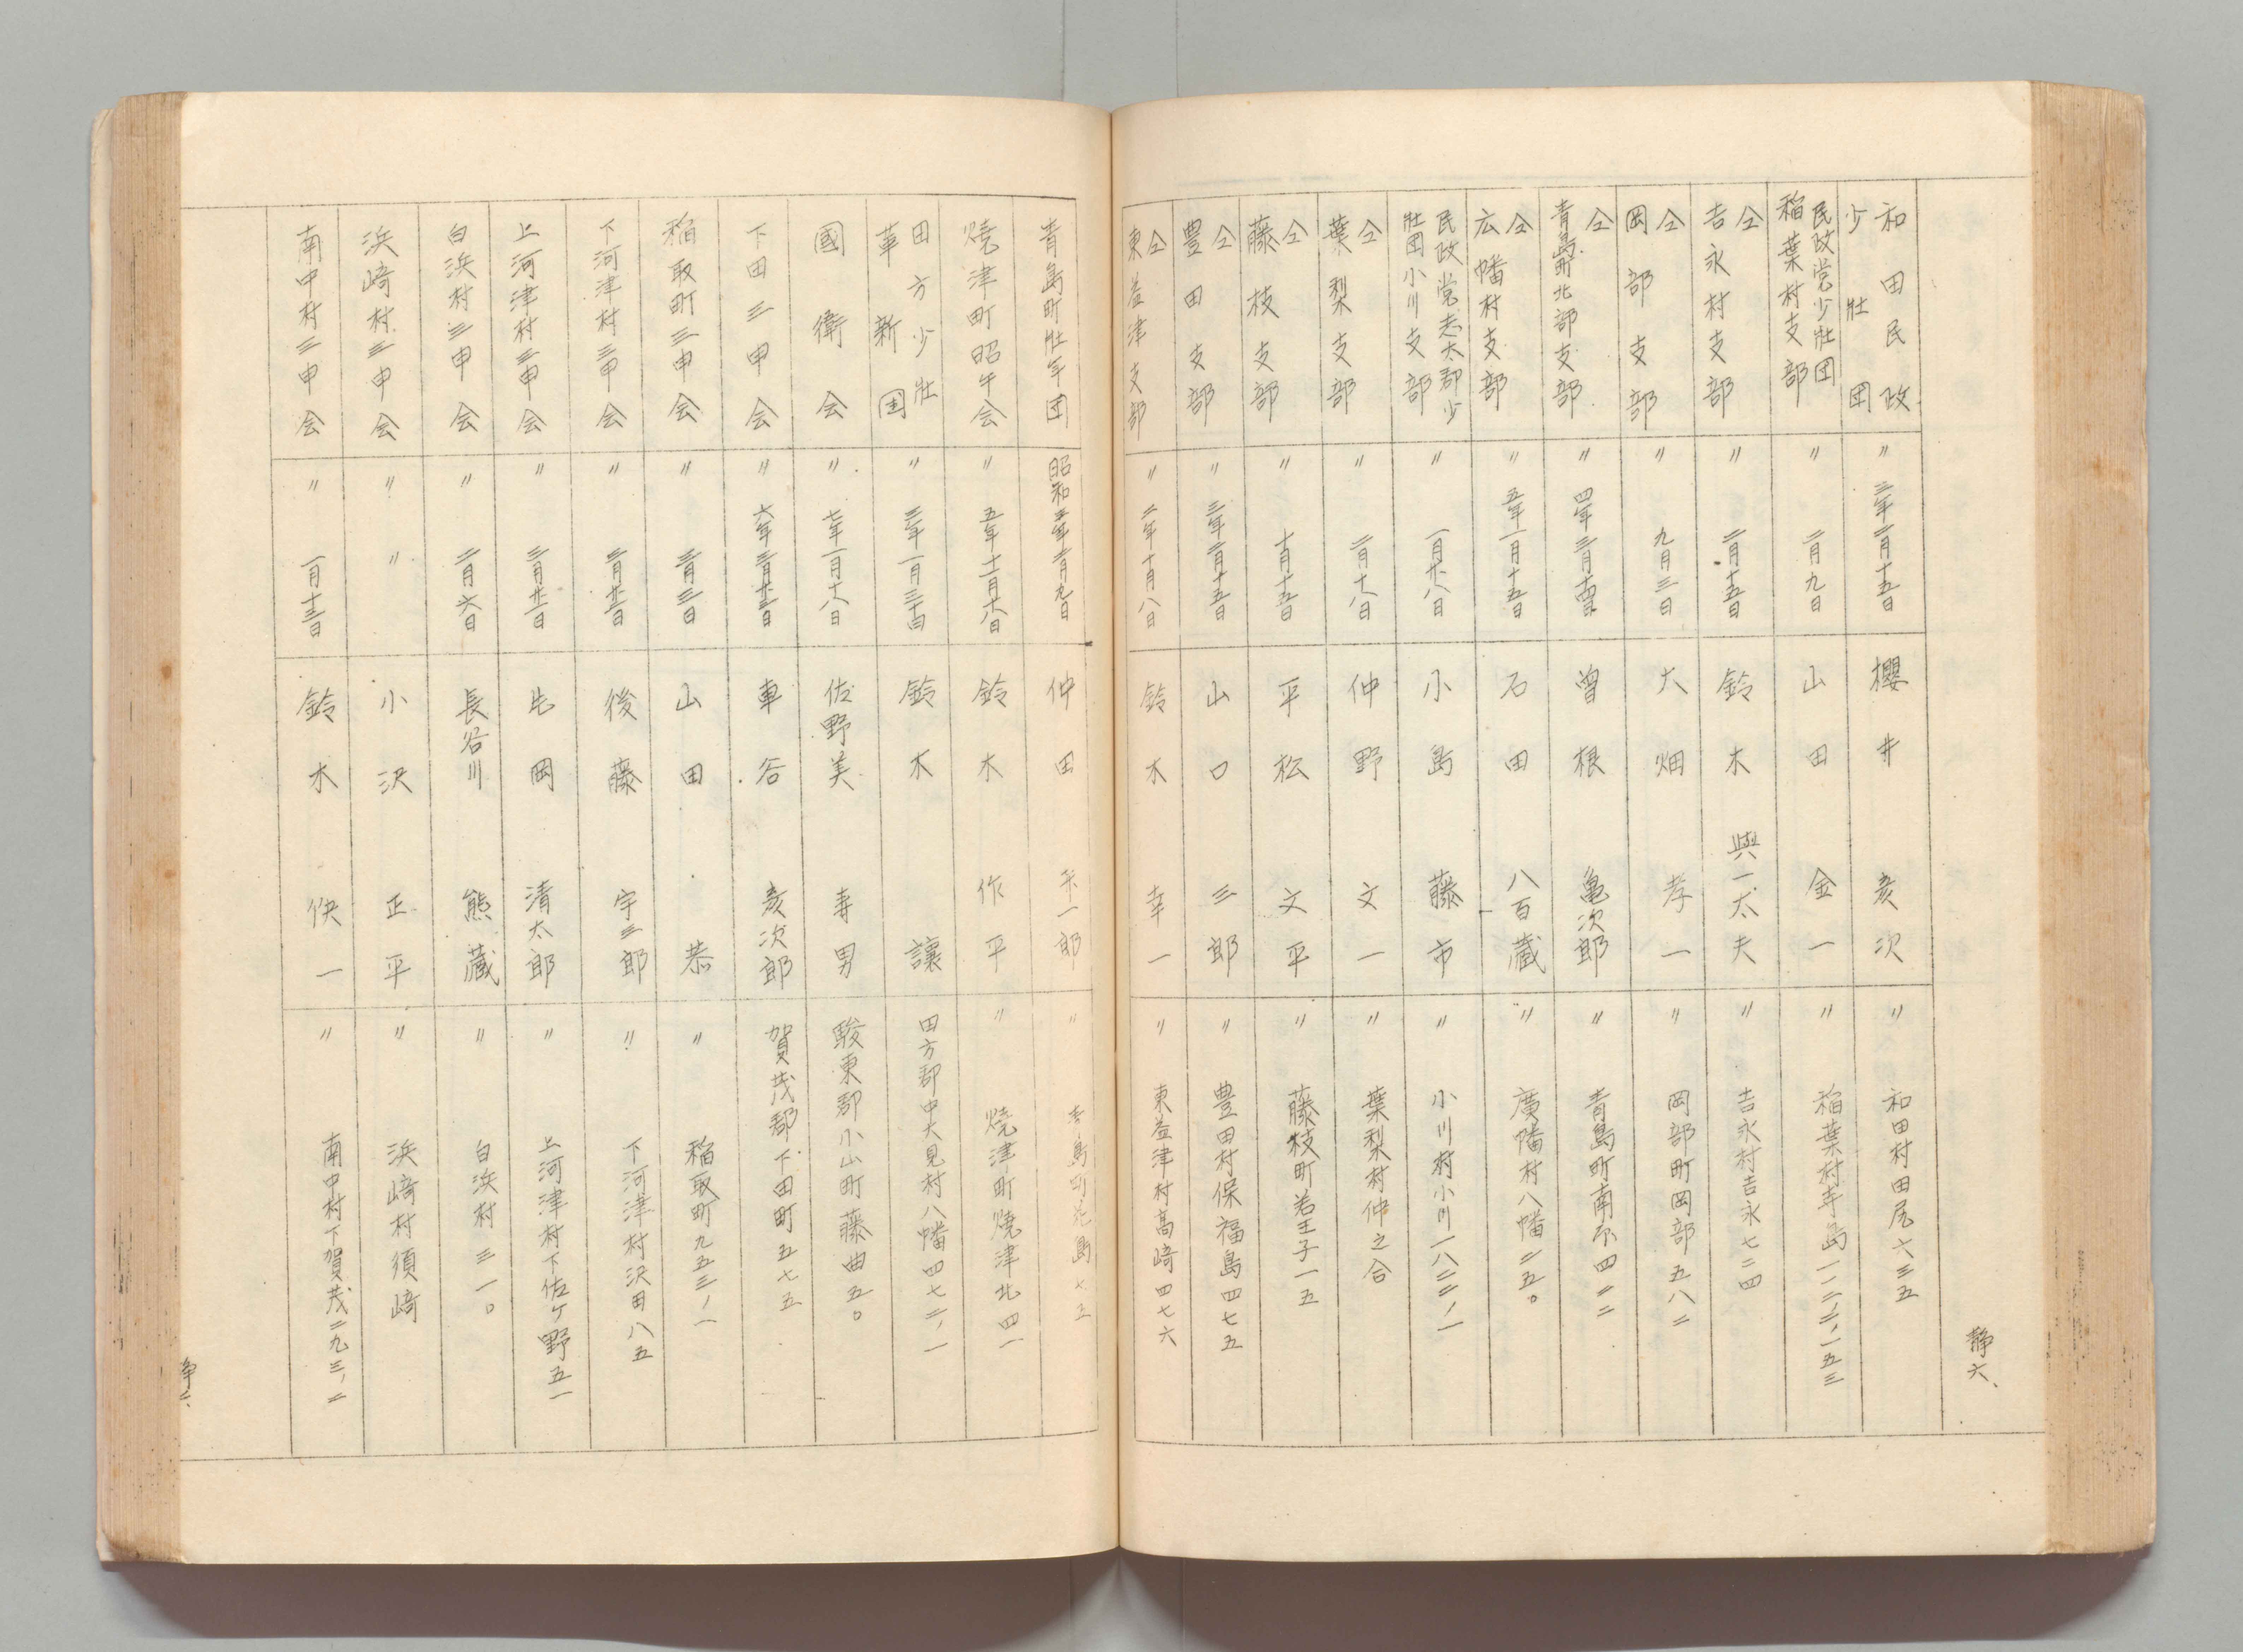 静六、
和田民政少壮団 〃 三年二月十五日 櫻井亥次 〃 和田村田尻六三五
民政党少壮団稲葉村支部 〃 二月九日 山田金一 〃 稲葉村寺島一一二二ノ一五三
仝吉永村支部 〃 二月十五日 鈴木與一太夫 〃 吉永村吉永七二四
仝岡部支部 〃 九月三日 大畑孝一 〃 岡部町岡部五八二
仝青島町北部支部 〃 四年三月十四日 曽根亀次郎 〃 青島町南 四二二
仝広幡村支部 〃 五年一月十五日 石田八百蔵 〃 廣幡村八幡二五〇
民政党志太郡少壮団小川支部 〃 一月廿八日 小島藤市 〃 小川村小川一八二二ノ一
仝葉梨支部 〃 二月十八日 仲野文一 〃 葉梨村仲之合
仝藤枝支部 〃 十月十五日 平松文平 〃 藤枝町若王子一五
仝豊田支部 〃 三年二月十五日 山口三郎 〃 豊田村保福島四七五
仝東益津支部 〃 二年十月八日 鈴木幸一 〃 東益津村高崎四七六
青島町壮年団 昭和五年二月九日 仲田 一郎 〃 青島町 島七五
焼津町昭午会 〃 五年十一月十六日 鈴木作平 〃 焼津町焼津北四一
田方少壮革新団 〃 三年一月三十日 鈴木讓 田方郡中大見村八幡四七二ノ一
國衛会 〃 七年一月十八日 佐野美寿男 駿東郡小山町藤曲五〇
下田三申会 〃 六年三月廿三日 車谷亥次郎 賀茂郡下田町五七五
稲取町三申会 〃 三月三日 山田恭 〃 稲取町九五三ノ一
下河津村三申会 〃 三月廿二日 後藤宇三郎 〃 下河津村沢田八五
上河津村三申会 〃 三月廿二日 岡清太郎 〃 上河津村下佐ケ野五一
白浜村三申会 〃 二月六日 長谷川熊藏 〃 白浜村三一〇
浜崎村三申会 〃 〃 小沢正平 〃 浜崎村須崎
南中村三申会 〃 一月十三日 鈴木 一 〃 南中村下賀茂二九三ノ二